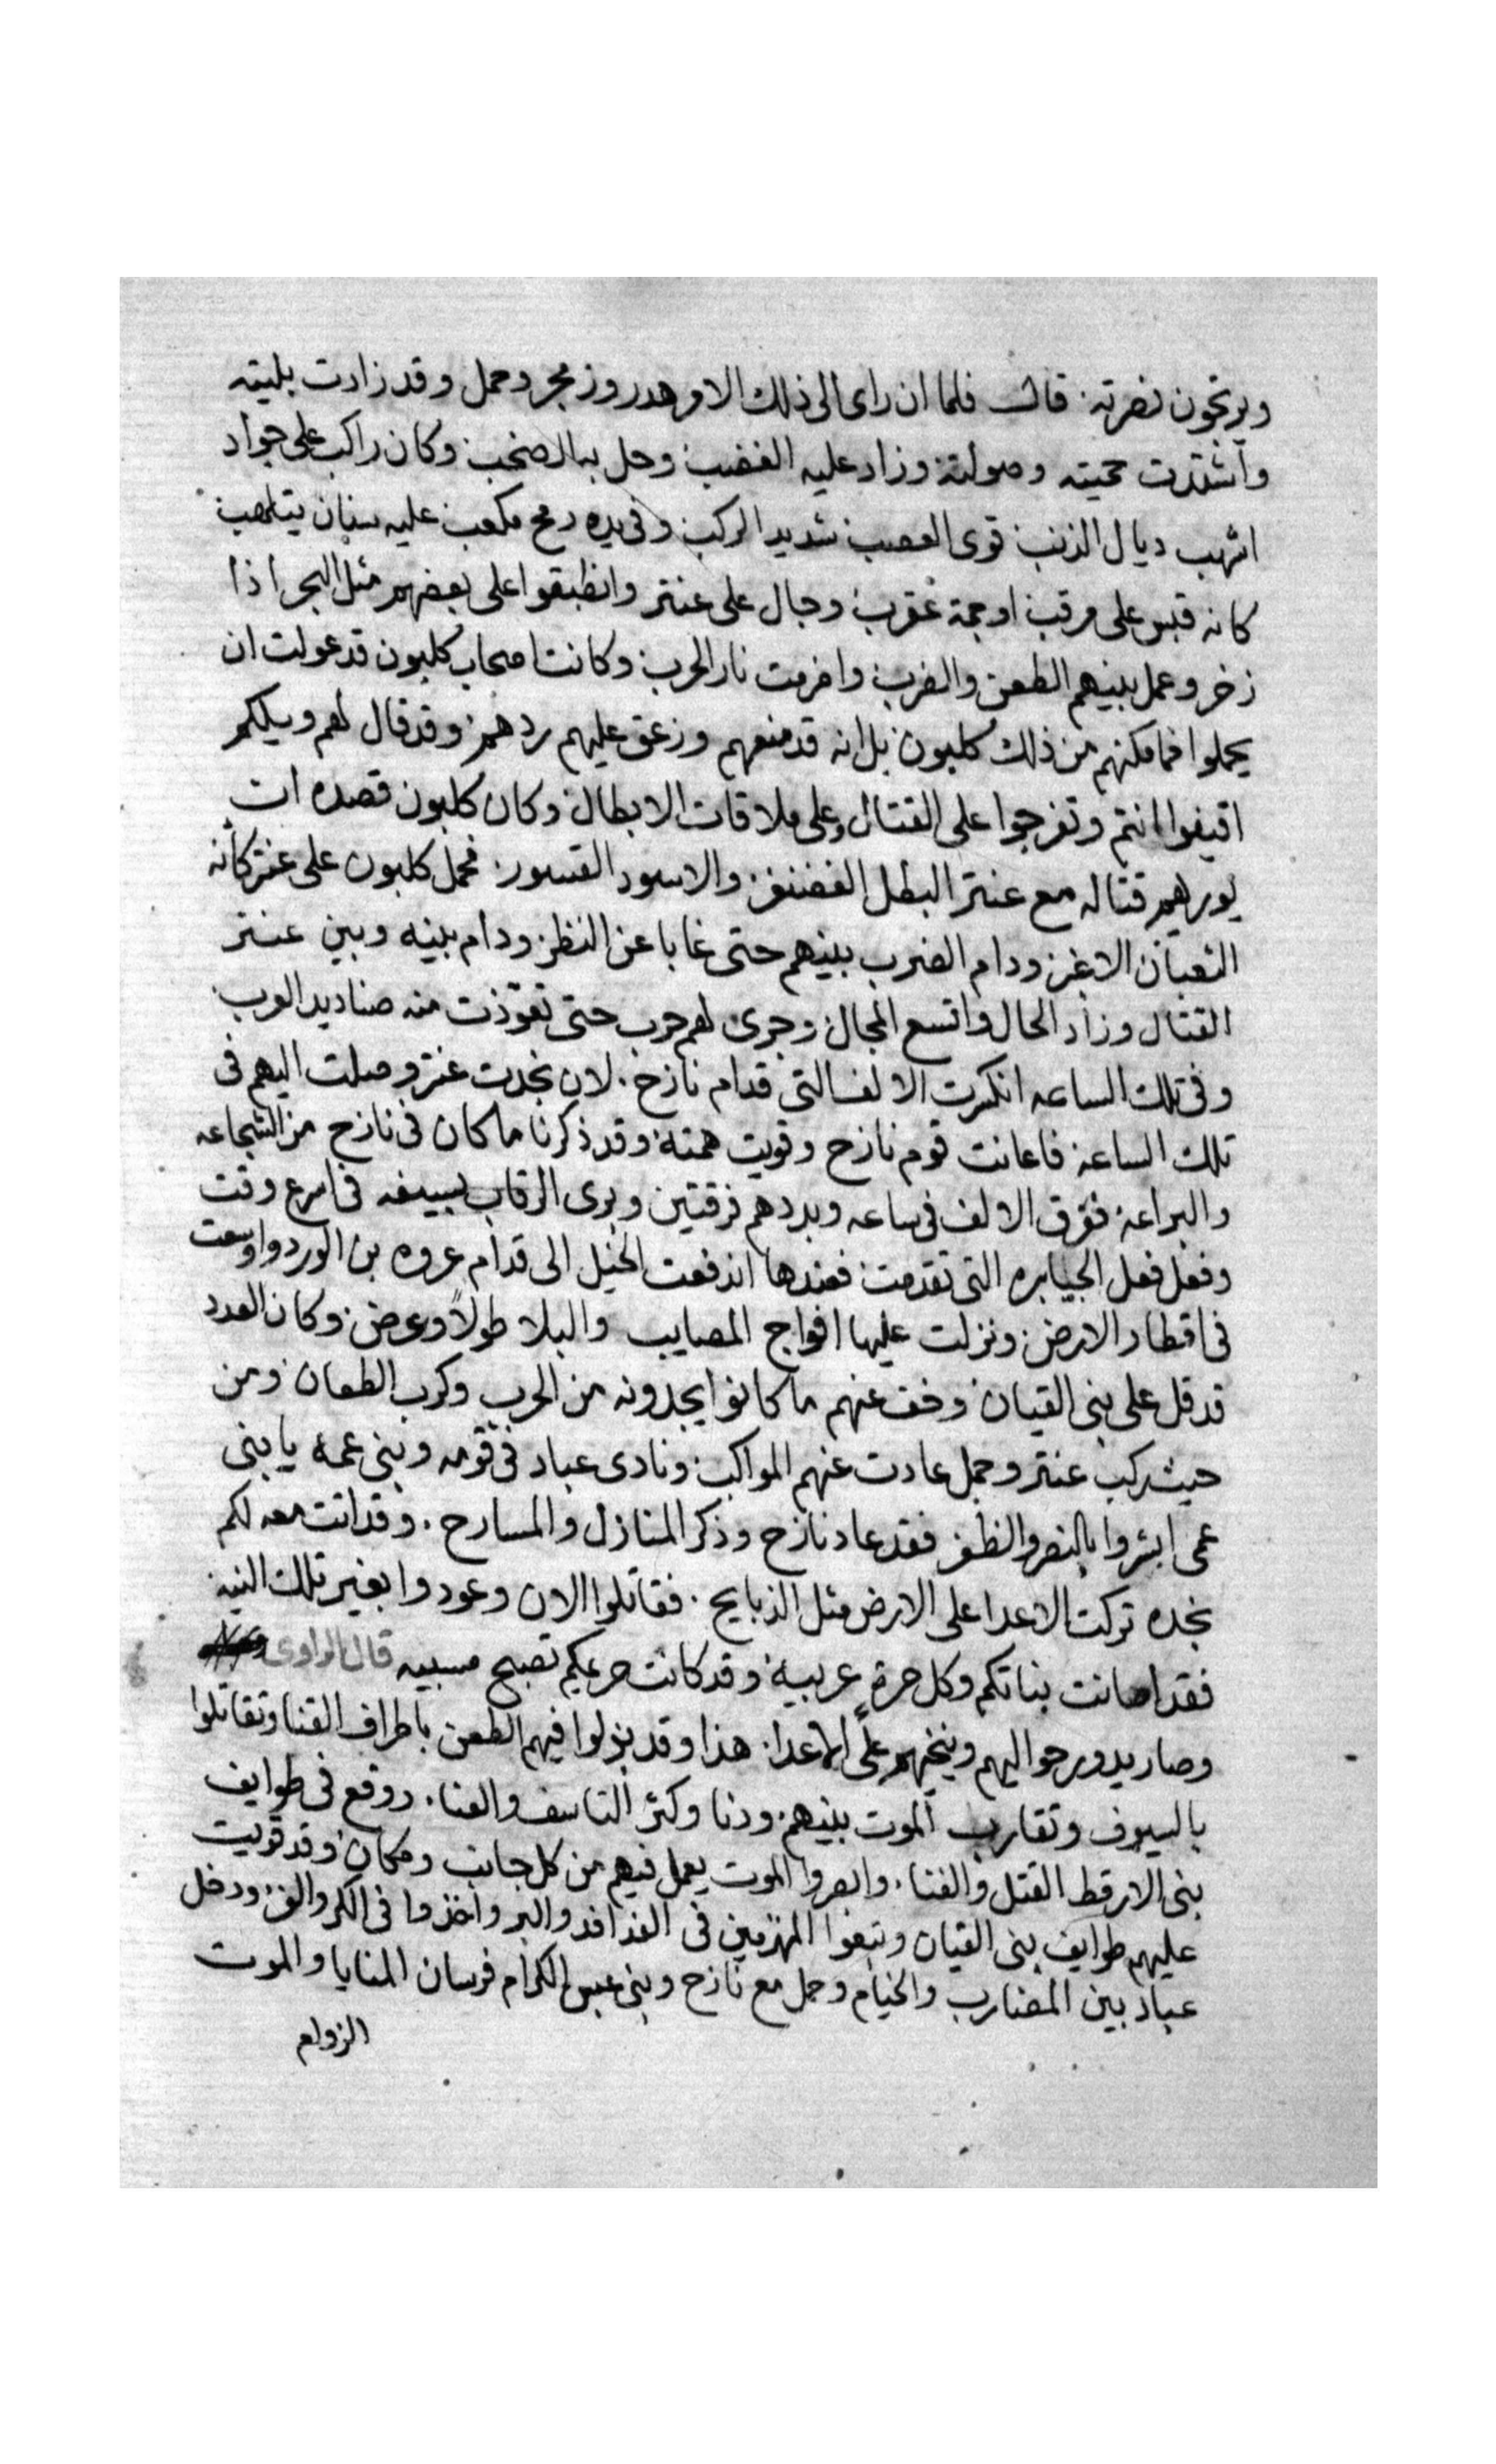 ويرتجون نصرته قال فلما ان راى الى ذلك الامر هدر وزمجر وحمل وقد زادت بليته
واشتدت حميته وصولته وزاد عليه الغضب وحل به الصخب وكان راكب على جواد
اشهب ديال الذنب قوى العصب شديد الركب وفى يده رمح مكعب عليه سنان يتلهب
كانه قبس على مرقب او حمة عقرب وجال على عنتر وانطبقوا على بعضهم مثل البحر اذا
زخر وعمل بينهم الطعن والضرب واضرمت نار الحرب وكانت اصحاب كلبون قد عولت ان
يحملوا فما مكنهم من ذلك كلبون بل انه قد منعهم وزعق عليهم ردهم وقد قال لهم ويلكم
اقيفوا انتم وتفرجوا على القتال وعلى ملاقات الابطال وكان كلبون قصده ان
يوريهم قتاله مع عنتر البطل الغضنفر والاسود القسور فحمل كلبون على عنتر كأنه
الثعبان الاغبر ودام الضرب بينهم حتى غابا عن النظر ودام بينه وبين عنتر
القتال وزاد الحال واتسع المجال وجرى لهم حرب حتى تعوّذت منه صناديد العرب
وفى تلك الساعه انكسرت الالف التى قدام نازح لان نجدت عنتر وصلت اليهم فى
تلك الساعة فاعانت قوم نازح وقويت همته وقد ذكرنا ما كان فى نازح من الشجاعه
والبراعة ففرق الالف فى ساعه وبددهم فرقتين وبرى الرقاب بسيفه فى اسرع وقت
وفعل فعل الجبابره التى تقدمت فعندها اندفعت الخيل الى قدام عروه بن الورد واوسعت
فى اقطار الارض ونزلت عليها افواج المصايب والبلا طولاً وعرض وكان العدد
قد قل على بنى القيان وخف عنهم ما كانوا يجدونه من الحرب وكرب الطعان ومن
حيث ركب عنتر وحمل عادت عنهم المواكب ونادى عباد فى قومه وبنى عمه يا بنى
عمى ابشروا بالنصر والظفر فقد عاد نازح وذكر المنازل والمسارح وقد اتت معه لكم
نجده تركت الاعدا على الارض مثل الذبايح فقاتلوا الان وعودوا بغير تلك النية
فقد اصانت بناتكم وكل حرةٍ عربية وقد كانت حريمكم تصبح مسبيه قال الراوى
وصار يدور حواليهم وينخيهم على الاعدا هذا وقد بذلوا فيهم الطعن باطراف القنا وتقاتلوا
بالسيوف وتقارب الموت بينهم ودنا وكثر التاسف والعنا ووقع فى طوايف
بنى الارقط القتل والفنا وابصروا الموت يعمل فيهم من كل جانب ومكان وقد قويت
عليهم طوايف بنى القيان وتبعوا المنهزمين فى الفدافد والبر واخذوا فى الكر والفر ودخل
عباد بين المضارب والخيام وحمل مع نازح وبنى عبس الكرام فرسان المنايا والموت
الزوام